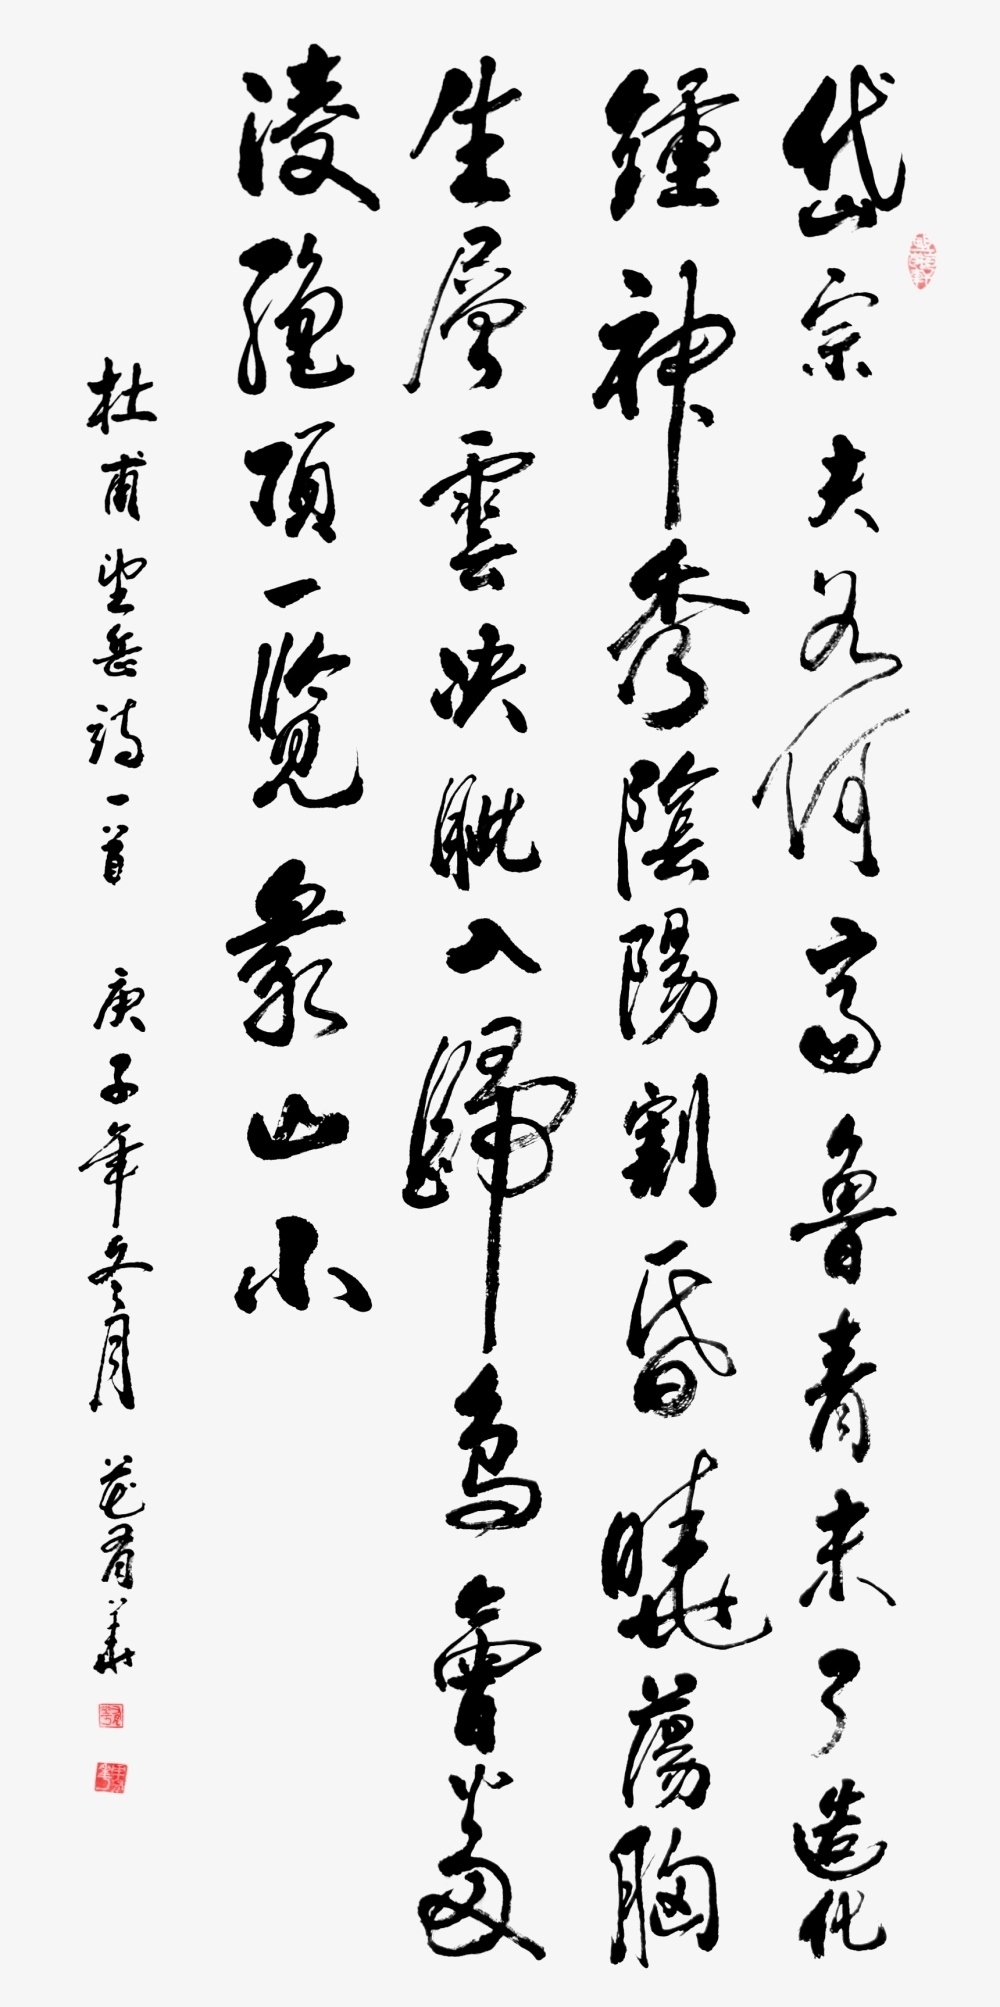 岱宗夫若何齊魯青未了造化
鍾神秀陰陽割昏曉蕩胸
生層雲決眦入歸鳥會當
淩絕頂一覽衆山小
杜甫望岳詩一首 庚子年冬月 有華